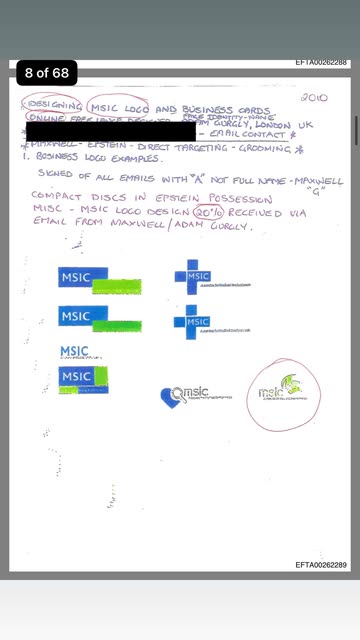 EFTA00262288
8 of 68
2010
DESIGNING MSIC LOGO AND BUSINESS CARDS
FAKE IDENTITY-NAME
ONLINE FREELANCE DESIGNER ADAM GURGLY, LONDON UK
- EMAIL CONTACT *
* MAXWELL - EPSTEIN - DIRECT TARGETING - GROOMING *
1. BUSINESS LOGO EXAMPLES.
SIGNED OF ALL EMAILS WITH "A" NOT FULL NAME - MAXWELL
"G"
COMPACT DISCS IN EPSTEIN POSSESSION
MISC - MSIC LOGO DESIGN 20% RECEIVED VIA
EMAIL FROM MAXWELL/ADAM GURGLY.
MSIC
MSIC
MSIC
MSIC
MSIC
MSIC
msic
msic
EFTA00262289